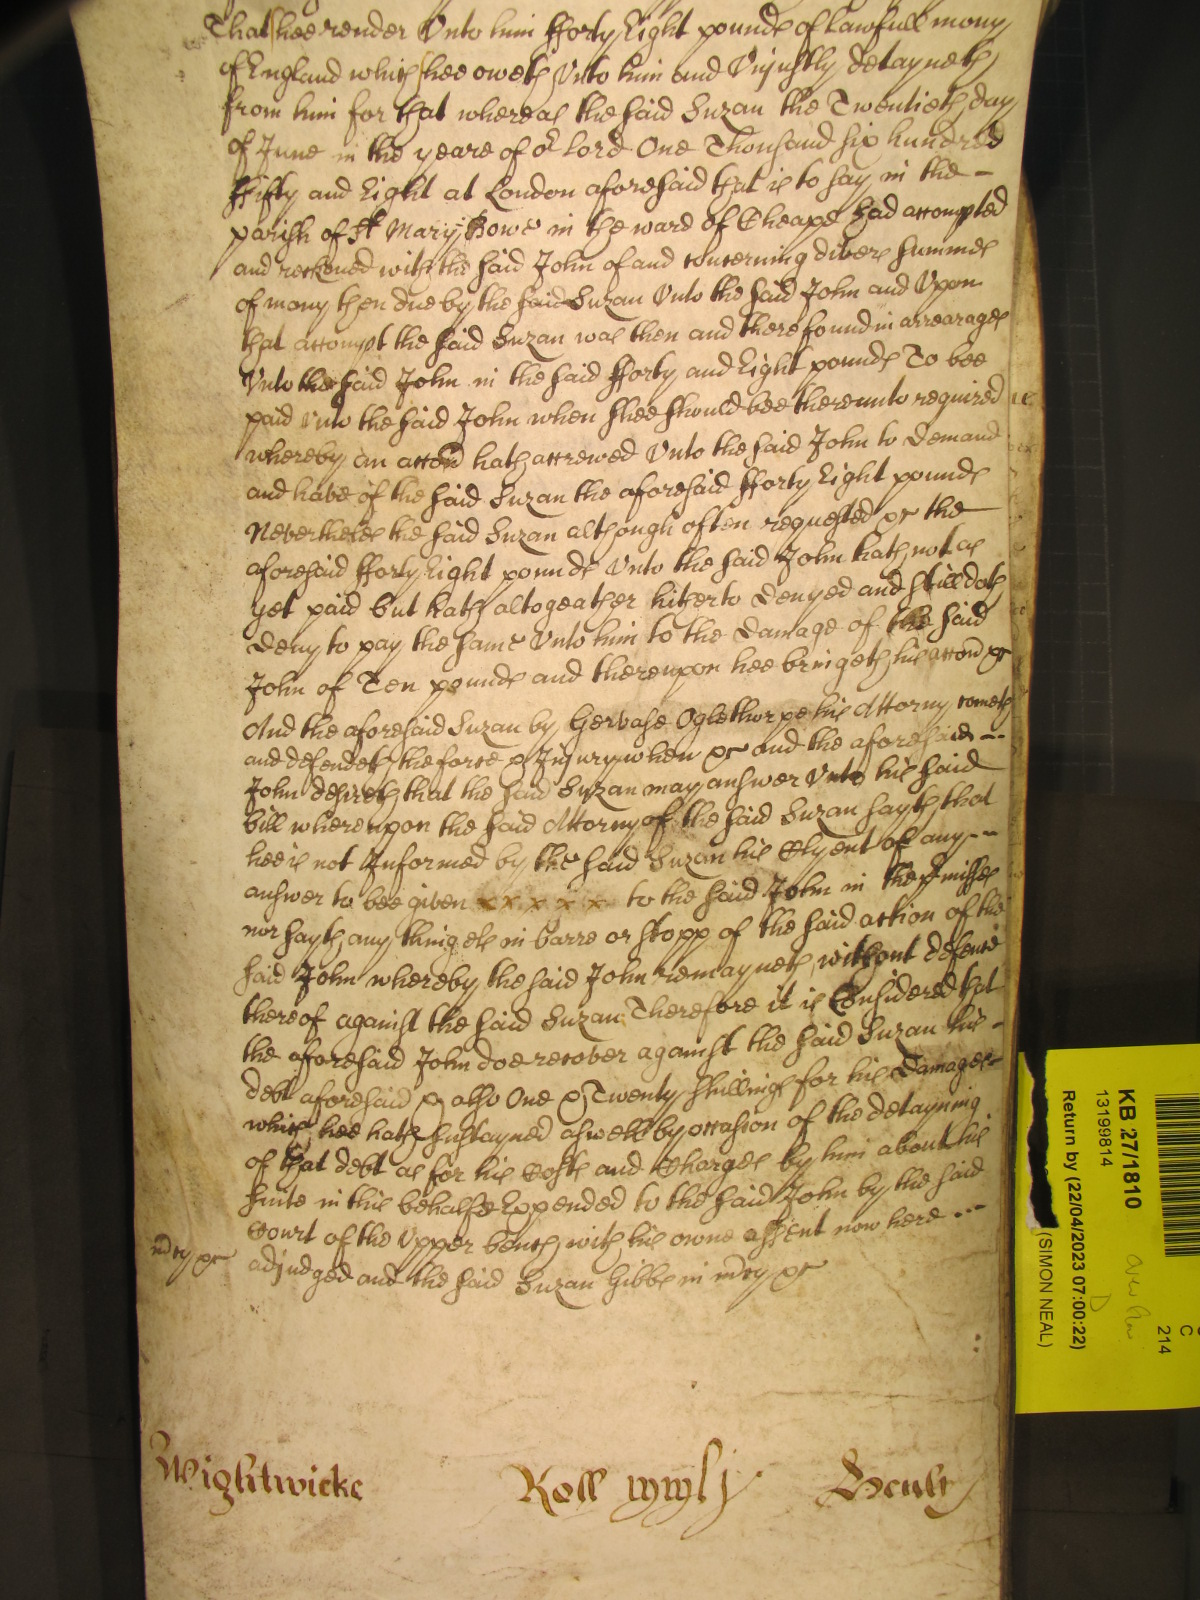 That shee render Unto him fforty Eight pounds of Lawfull mony
of England which shee oweth Unto him and Uniustly detayneth
from him for that whereas the said Suzan the Twentieth day
of June in the yeare of or Lord One Thousand six hundred
ffifty and Eight at London aforesaid that is to say in the -
parish of St Mary Bowe in the ward of Cheape had accompted
and reckoned with the said John of and concerning divers summes
of mony then due by the said Suzan Unto the said John and Upon
that accompt the said Suzan was then and there found in arrearages
Unto the said John in the said fforty and Eight pounds To bee
paid Unto the said John when shee should bee thereunto required
whereby an accon hath accrewed Unto the said John to demand
and have of the said Suzan the aforesaid fforty Eight pounds
Neverthelesse the said Suzan although often requested &c the
aforesaid fforty Eight pounds Unto the said John hath not as
yet paid but hath altogeather hitherto denyed and still doth
deny to pay the same Unto him to the damage of the said
John of Ten pounds and thereupon hee bringeth his accon &c
And the aforesaid Suzan by Gervase Oglethorpe his Attorny cometh
and defendeth the force & Injury when &c and the aforesaid --
John desireth that the said Suzan may answer Unto his said
bill whereupon the said Attorny of the said Suzan sayth that
hee is not Informed by the said Suzan his Clyent of any --
answer to bee given x x x x x to the said John in the pmisses
nor sayth any thinge els in barre or stopp of the said action of the
said John whereby the said John remayneth without defence
thereof against the said Suzan Therefore it is Considered that
the aforesaid John doe recover against the said Suzan his -
debt aforesaid & also One & Twenty shillings for his Damages
which hee hath sustayned aswell by occasion of the detayning
of that debt as for his Costs and Charges by him about his
suite in this behalfe Expended to the said John by the said
Court of the Upper bench with his owne assent now here ---
mcy &c adjudged and the said Suzan Gibbs in mcy &c
Wightwicke Roll
KB 27/1810
13199814
Return by (22/04/2023 07:00:22)
(SIMON NEAL)
C
214
D